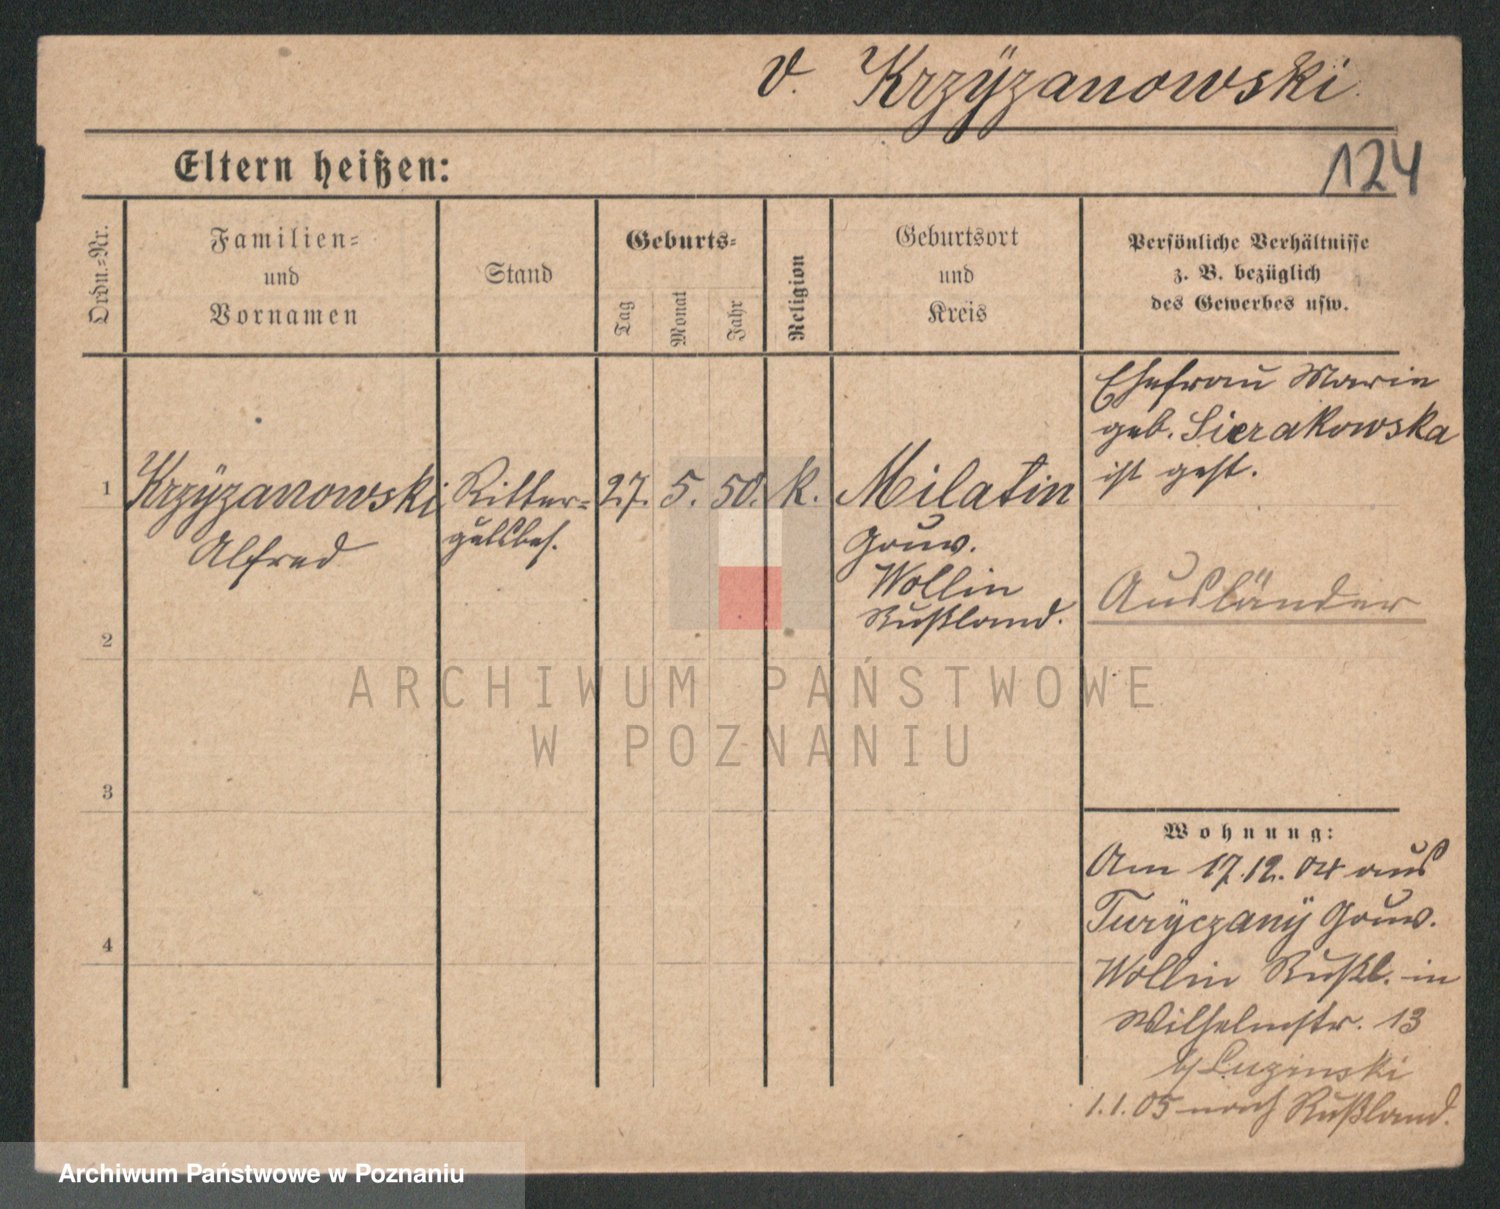 v. Krzÿzanowski
Eltern heißen:
124
Ordn.=Nr.
Familien=
und
Vornamen
Stand
Geburts=
Tag
Monat
Jahr
Religion
Geburtsort
und
Kreis
Persönliche Verhältnisse
z. B. bezüglich
des Gewerbes usw.
1
Krzÿzanowski
Alfred
Ritter=
gutsbes.
27. 5. 50. k.
Milatin
Gouv.
Wollin
Rußland.
Ehefrau Marie
geb. Sierakowska
ist gest.
Ausländer
2
3
4
Wohnung:
Am 17.12.04 aus
Turÿczanÿ Gouv.
Wollin Rußl. in
Wilhelmstr. 13
b/Luzinski
1.1.05 nach Rußland.
ARCHIWUM PAŃSTWOWE
W POZNANIU
Archiwum Państwowe w Poznaniu